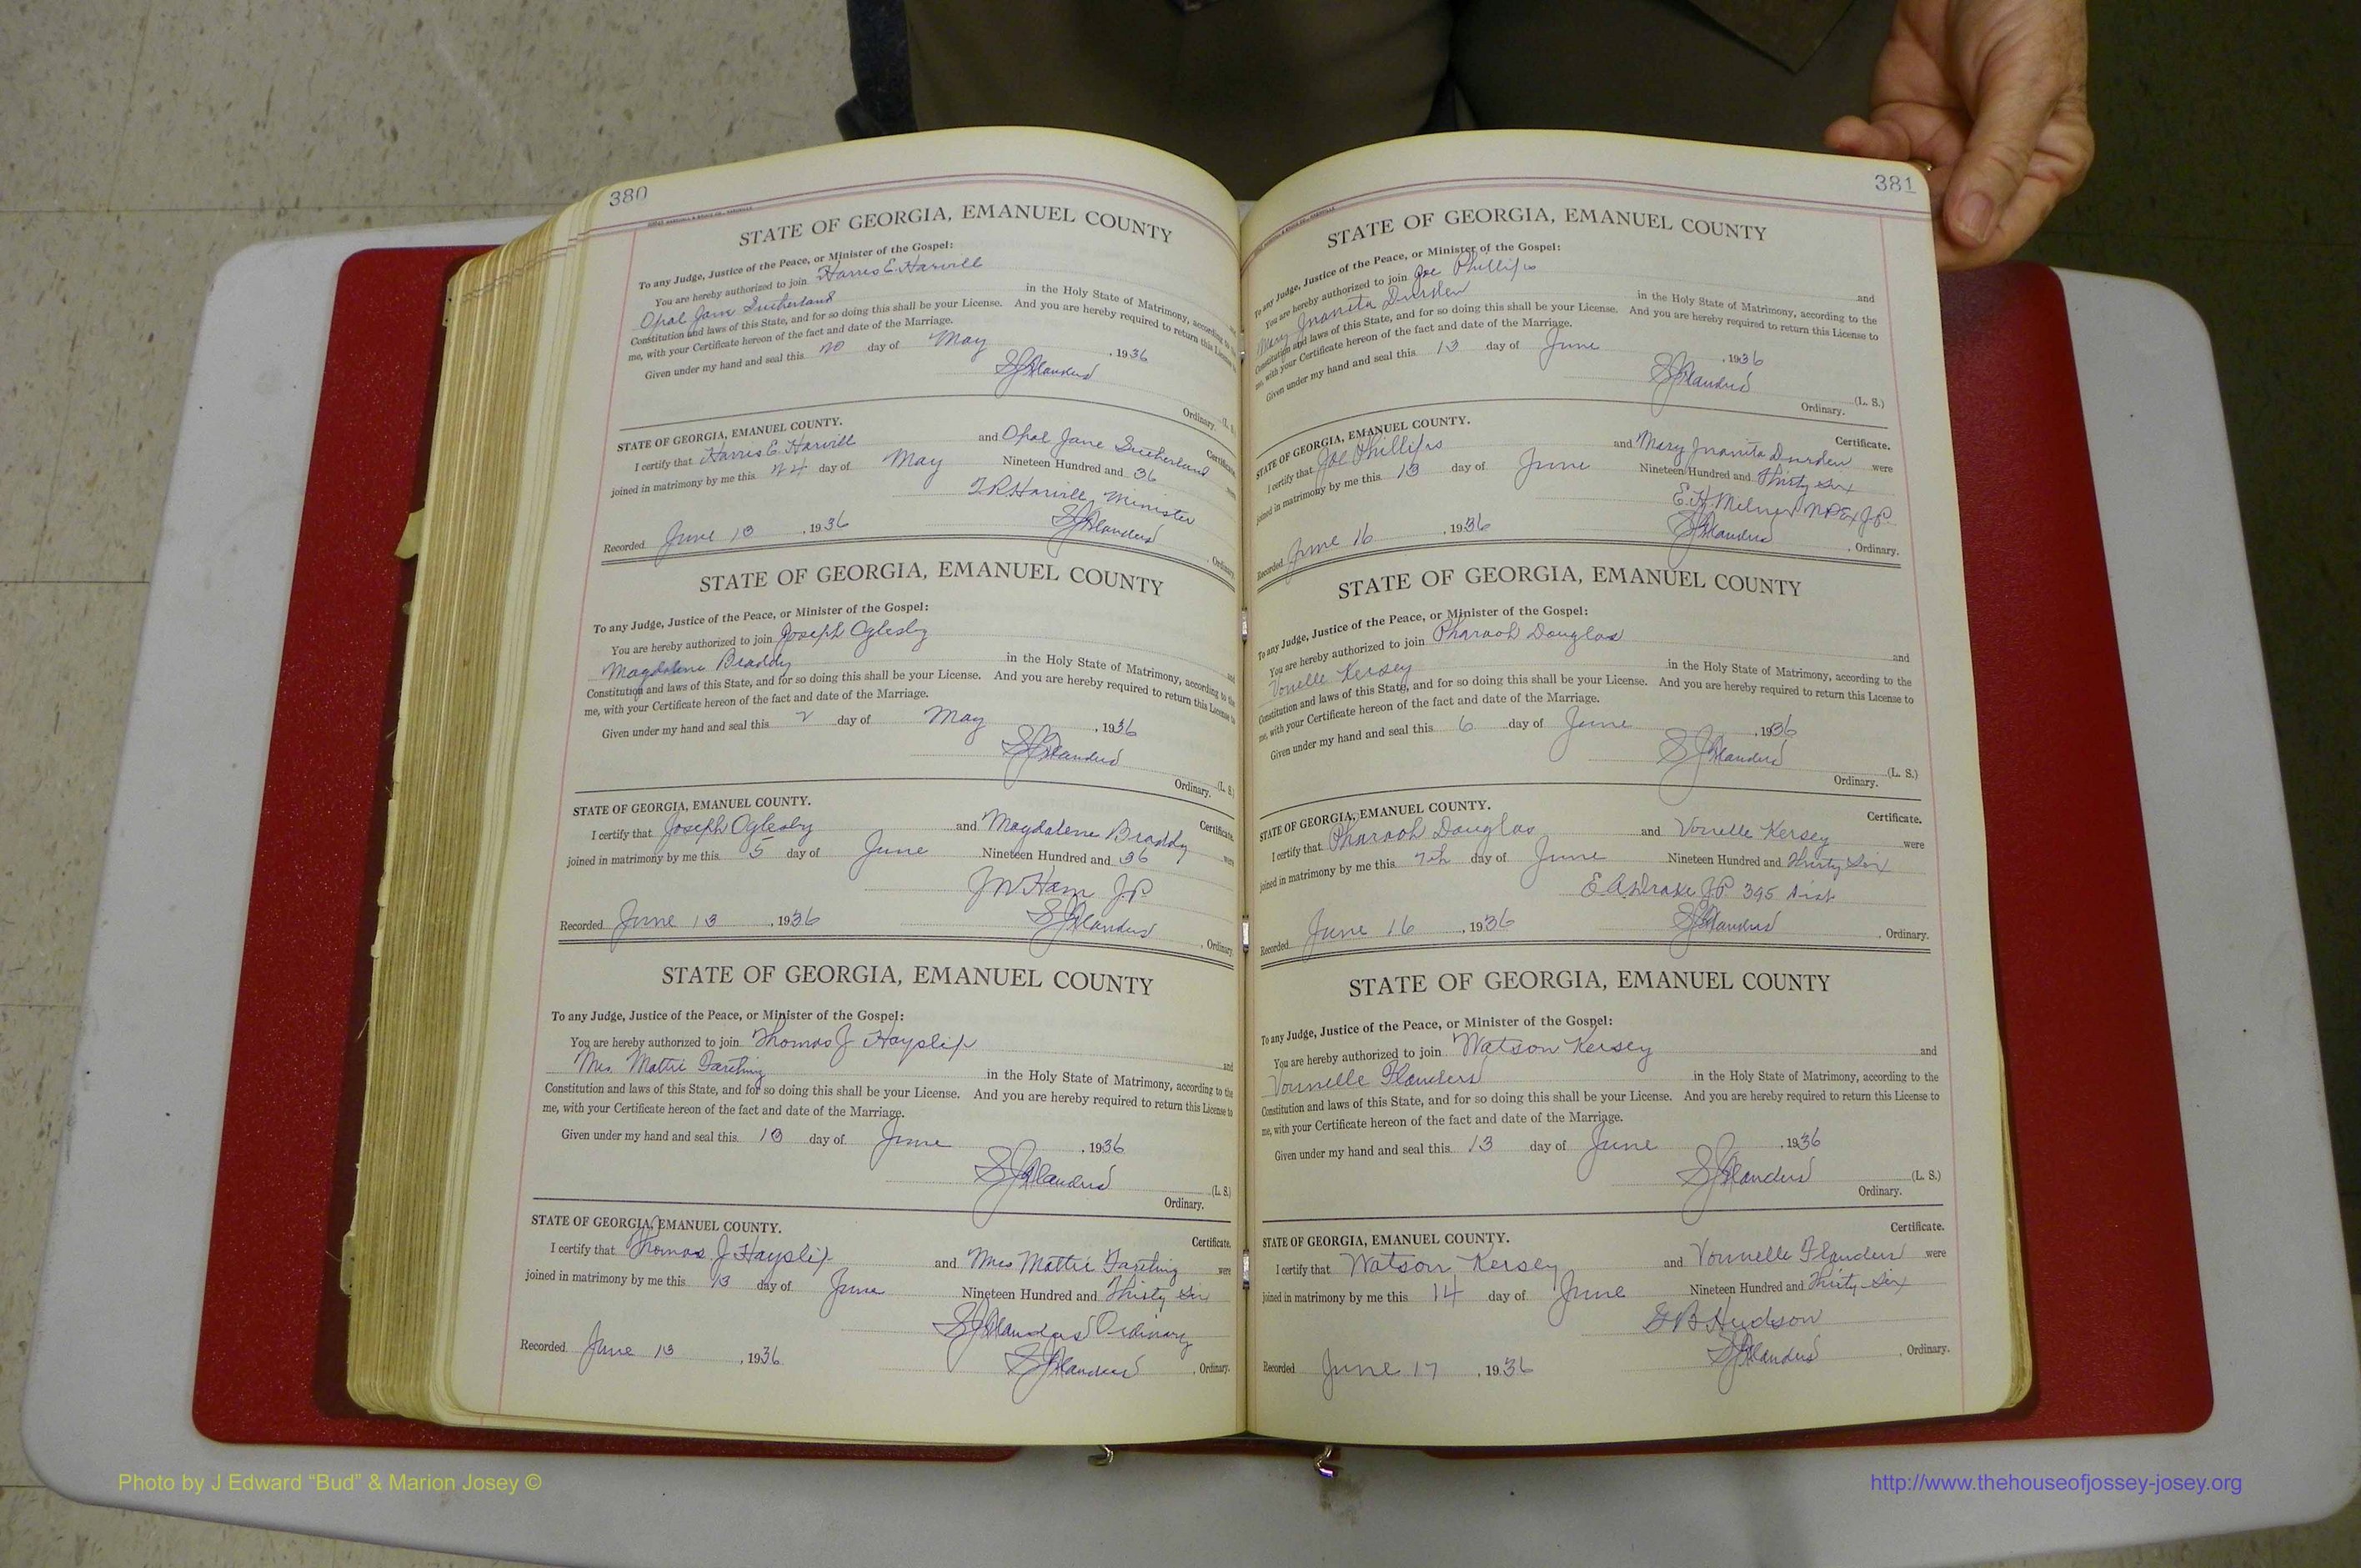 380
STATE OF GEORGIA, EMANUEL COUNTY
To any Judge, Justice of the Peace, or Minister of the Gospel:
You are hereby authorized to join Harris E. Harvill
and
Opal Jane Sutherland in the Holy State of Matrimony, according to the
Constitution and laws of this State, and for so doing this shall be your License. And you are hereby required to return this License to
me, with your Certificate hereon of the fact and date of the Marriage.
Given under my hand and seal this day of May, 1936
S J Flanders (L. S.)
Ordinary.
STATE OF GEORGIA, EMANUEL COUNTY. Certificate.
I certify that Harris E. Harvill and Opal Jane Sutherland were
joined in matrimony by me this 24 day of May Nineteen Hundred and 36
Harvill, Minister
Recorded June 13, 1936 S J Flanders, Ordinary.
STATE OF GEORGIA, EMANUEL COUNTY
To any Judge, Justice of the Peace, or Minister of the Gospel:
You are hereby authorized to join Joseph Oglesby
and
Magdalene Braddy in the Holy State of Matrimony, according to the
Constitution and laws of this State, and for so doing this shall be your License. And you are hereby required to return this License to
me, with your Certificate hereon of the fact and date of the Marriage.
Given under my hand and seal this 2 day of May, 1936
S J Flanders (L. S.)
Ordinary.
STATE OF GEORGIA, EMANUEL COUNTY. Certificate.
I certify that Joseph Oglesby and Magdalene Braddy were
joined in matrimony by me this 5 day of June Nineteen Hundred and 36
J W Ham J.P.
Recorded June 13, 1936 S J Flanders, Ordinary.
STATE OF GEORGIA, EMANUEL COUNTY
To any Judge, Justice of the Peace, or Minister of the Gospel:
You are hereby authorized to join Thomas J Hayslip
and
Mrs. Mattie Farthing in the Holy State of Matrimony, according to the
Constitution and laws of this State, and for so doing this shall be your License. And you are hereby required to return this License to
me, with your Certificate hereon of the fact and date of the Marriage.
Given under my hand and seal this 13 day of June, 1936
S J Flanders (L. S.)
Ordinary.
STATE OF GEORGIA, EMANUEL COUNTY. Certificate.
I certify that Thomas J Hayslip and Mrs Mattie Farthing were
joined in matrimony by me this 13 day of June Nineteen Hundred and Thirty Six
S J Flanders Ordinary
Recorded June 13, 1936 S J Flanders, Ordinary.
381
STATE OF GEORGIA, EMANUEL COUNTY
To any Judge, Justice of the Peace, or Minister of the Gospel:
You are hereby authorized to join Joe Phillips and
Mary Juanita Durden in the Holy State of Matrimony, according to the
Constitution and laws of this State, and for so doing this shall be your License. And you are hereby required to return this License to
me, with your Certificate hereon of the fact and date of the Marriage.
Given under my hand and seal this 13 day of June, 1936
S J Flanders (L. S.)
Ordinary.
STATE OF GEORGIA, EMANUEL COUNTY. Certificate.
I certify that Joe Phillips and Mary Juanita Durden were
joined in matrimony by me this 13 day of June Nineteen Hundred and Thirty Six
E. H. Milner NP Ex J.P.
Recorded June 16, 1936 S J Flanders, Ordinary.
STATE OF GEORGIA, EMANUEL COUNTY
To any Judge, Justice of the Peace, or Minister of the Gospel:
You are hereby authorized to join Pharaoh Douglas and
Vonelle Kersey in the Holy State of Matrimony, according to the
Constitution and laws of this State, and for so doing this shall be your License. And you are hereby required to return this License to
me, with your Certificate hereon of the fact and date of the Marriage.
Given under my hand and seal this 6 day of June, 1936
S J Flanders (L. S.)
Ordinary.
STATE OF GEORGIA, EMANUEL COUNTY. Certificate.
I certify that Pharaoh Douglas and Vonelle Kersey were
joined in matrimony by me this 7th day of June Nineteen Hundred and Thirty Six
E A Drake J.P. 395 Dist
Recorded June 16, 1936 S J Flanders, Ordinary.
STATE OF GEORGIA, EMANUEL COUNTY
To any Judge, Justice of the Peace, or Minister of the Gospel:
You are hereby authorized to join Watson Kersey and
Vonnelle Flanders in the Holy State of Matrimony, according to the
Constitution and laws of this State, and for so doing this shall be your License. And you are hereby required to return this License to
me, with your Certificate hereon of the fact and date of the Marriage.
Given under my hand and seal this 13 day of June, 1936
S J Flanders (L. S.)
Ordinary.
STATE OF GEORGIA, EMANUEL COUNTY. Certificate.
I certify that Watson Kersey and Vonnelle Flanders were
joined in matrimony by me this 14 day of June Nineteen Hundred and Thirty-Six
G B Hudson
Recorded June 17, 1936 S J Flanders, Ordinary.
Photo by J Edward “Bud” & Marion Josey ©
http://www.thehouseofjossey-josey.org